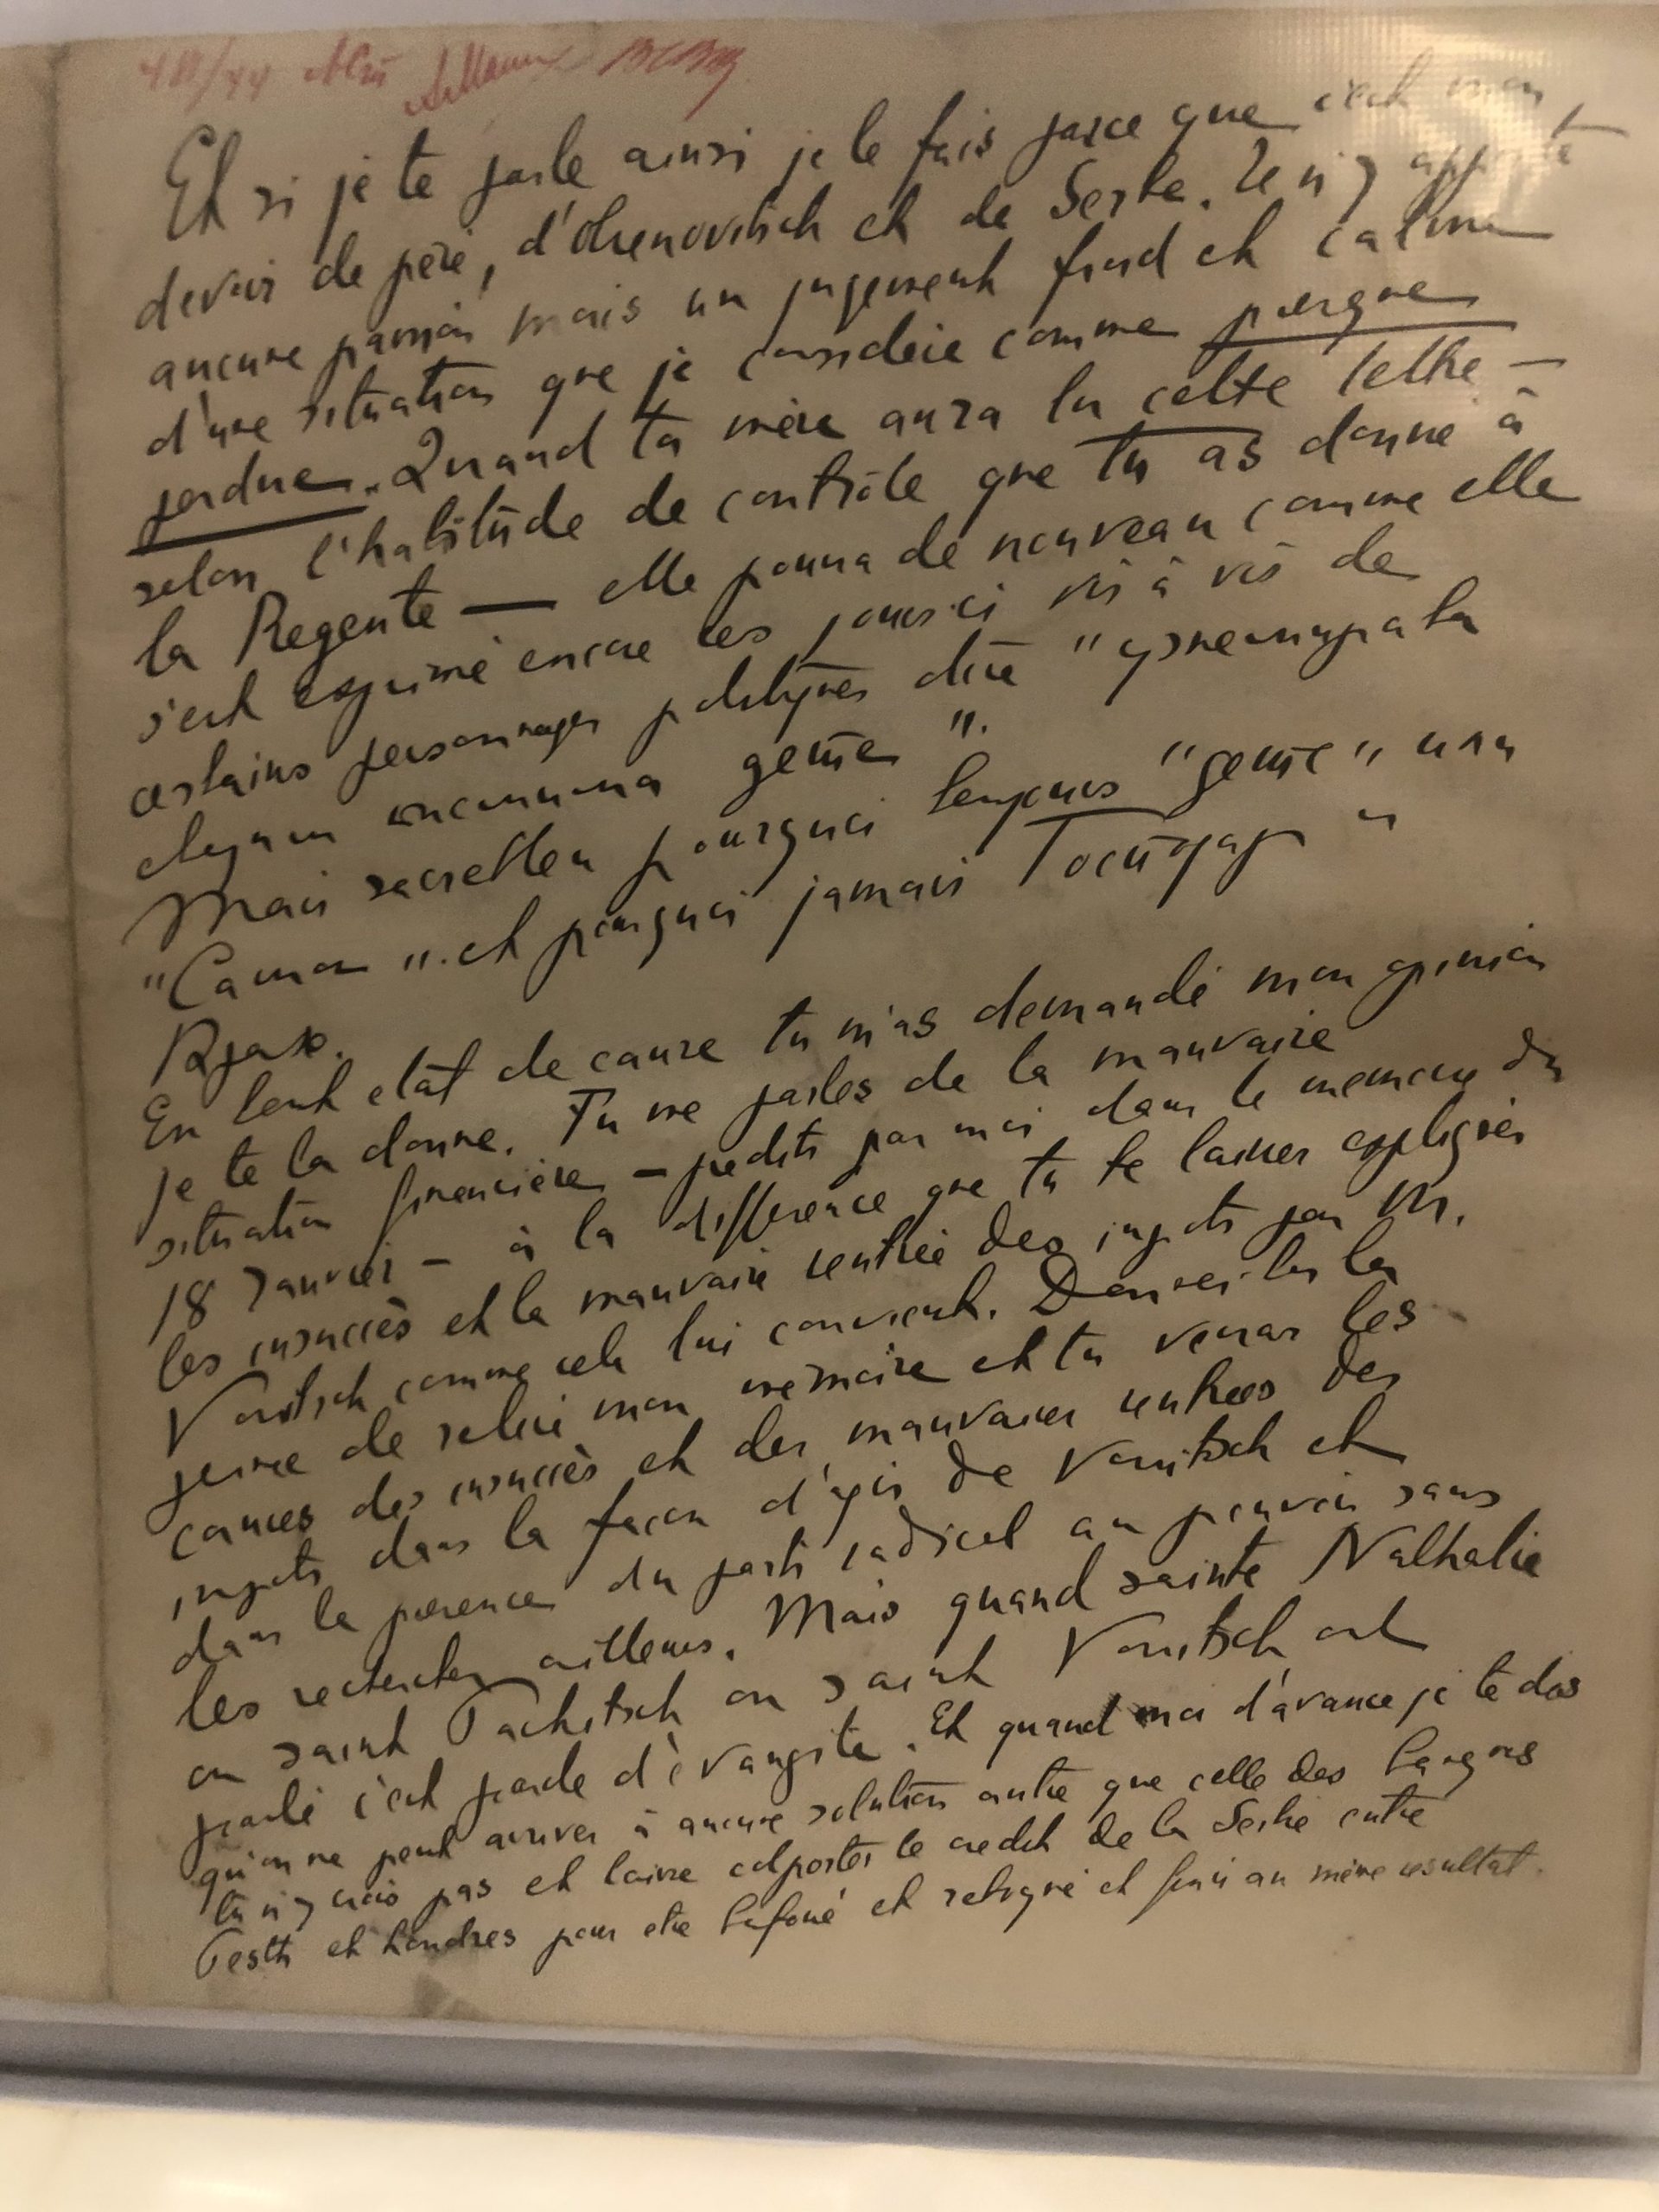 Et si je te parle ainsi je le fais parce que c'est mon
devoir de père, d'Obrenovitsch et de Serbe. Je n'y apporte
aucune passion mais un jugement froid et calme
d'une situation que je considère comme presque
perdue. Quand ta mère aura lu cette lettre —
selon l'habitude de contrôle que tu as donné à
la Regente — elle pourra de nouveau comme elle
s'est exprimé encore ces jours-ci vis à vis de
certains personnages politiques dire
дете".
Mais sacrebleu pourquoi toujours "дете" или
"Саша" et pourquoi jamais "Господар"
En tout etat de cause tu m'as demandé mon opinion
je te la donne. Tu me parles de la mauvaise
situation financière — predits par moi dans le memoire du
18 Janvier — à la difference que tu te laisses expliquer
les insuccès et la mauvaise rentrée des impots par M.
Vouitsch comme cela lui convient. Donnes-tu la
peine de relire mon memoire et tu verras les
causes des insuccès et des mauvaises rentrées des
impots dans la façon d'agir de Vouitsch et
dans la presence du parti radical au pouvoir sans
les rechercher ailleurs. Mais quand sainte Nathalie
ou saint Pachitsch ou saint Vouitsch ont
parlé c'est parole d'évangile. Et quand moi d'avance je te dis
qu'on ne peut arriver à aucune solution autre que celle des banques
tu n'y crois pas et laisse colporter le credit de la Serbie entre
Pesth et Londres pour etre bafoué et et fini au même resultat.